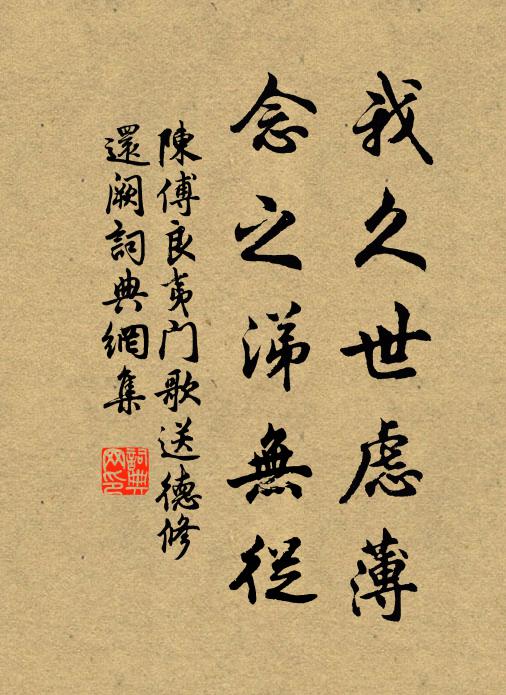 我久世慮薄
念之涕無從
陳傅良夷门歌送德修
還阙詞典網集
詞典网印